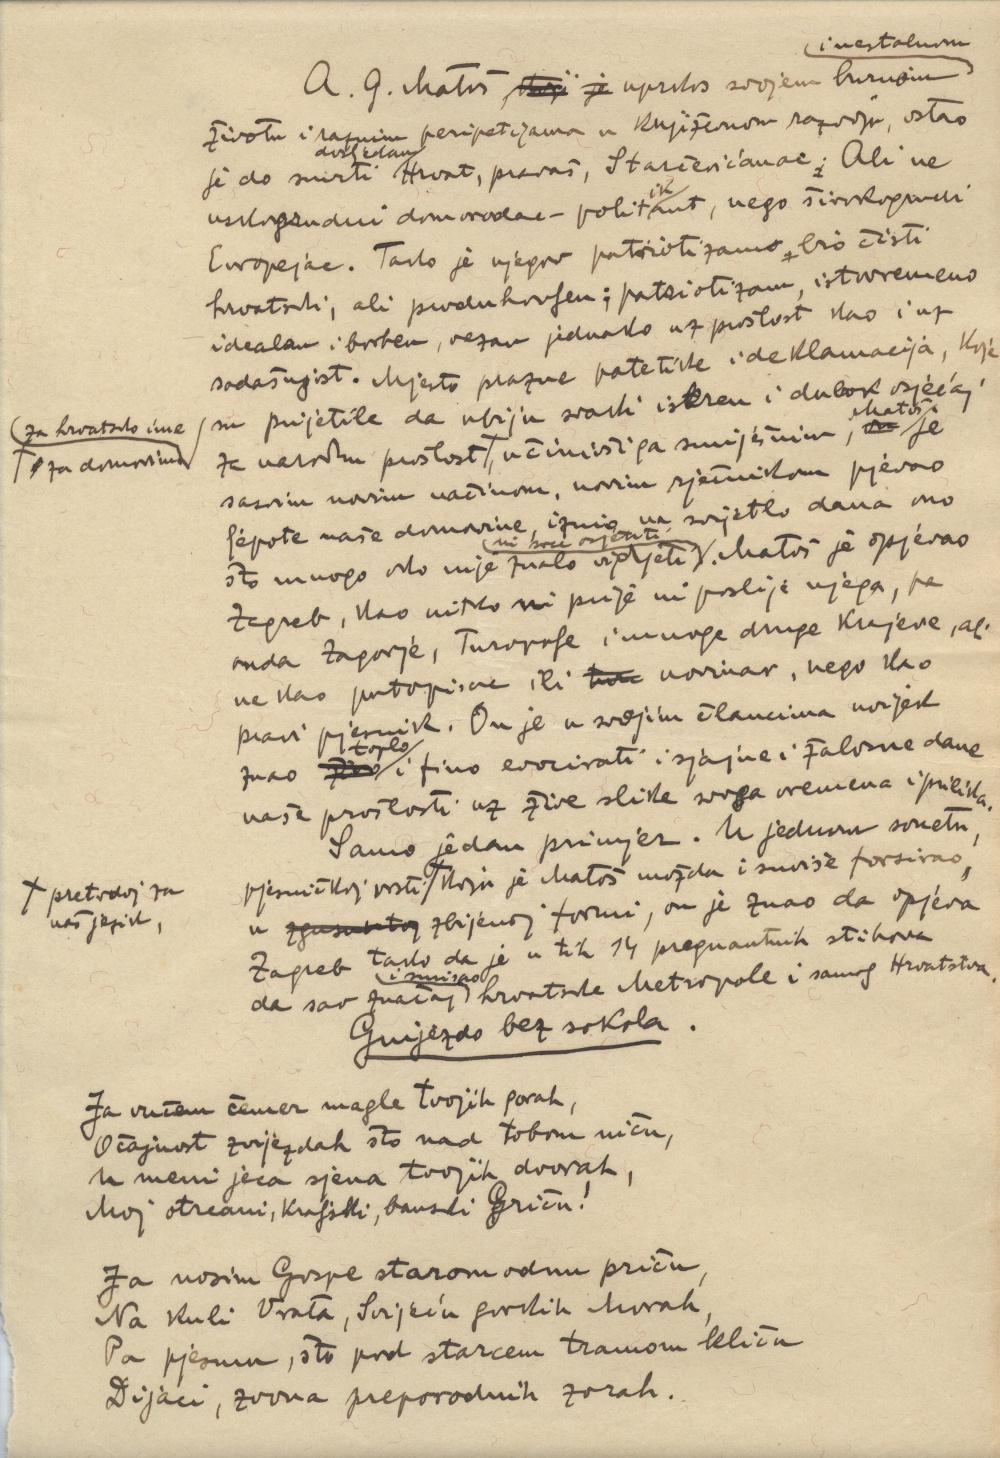 i nestalnom
A. G. Matoš, koji je uprkos svojem burnom
životu i raznim peripetijama u književnom razvoju, ostao
dosljedan
je do smrti Hrvat, pravaš, Starčevićanac; Ali ne
uskogrudni domorodac – politikant, nego širokogrudi
Europejac. Tako je njegov patriotizam bio čisti
hrvatski, ali produhovljen; patriotizam, istovremeno
idealan i borben, vezan jednako uz prošlost kao i uz
sadašnjost. Mjesto prazne patetike i deklamacija, koje
za hrvatsko ime
su prijetile da ubiju svaki iskren i dubok osjećaj
Matoš
za domovinu
za narodnu prošlost, učinivši ga smiješnim, on je
sasvim novim načinom, novim rječnikom pjevao
ljepote naše domovine, iznio na svijetlo dana ono
ni htio osjetiti
što mnogo oko nije znalo vidjeti. Matoš je opjevao
Zagreb, kao nitko ni prije ni poslije njega, pa
onda Zagorje, Turopolje i mnoge druge krajeve, ali
ne kao putopisac ili novinar, nego kao
pravi pjesnik. On je u svojim člancima uvijek
toplo
znao i fino evocirati i sjajne i žalosne dane
naše prošlosti uz žive slike svoga vremena i prilika.
Samo jedan primjer. U jednom sonetu,
pretvrdoj za
naš jezik,
pjesničkoj vrsti koju je Matoš možda i suviše forsirao,
u zgusnutoj zbijenoj formi, on je znao da opjeva
Zagreb tako da je u tih 14 pregnantnih stihova
i smisao
da sav značaj hrvatske Metropole i samog Hrvatstva.
Gnijezdo bez sokola.
Ja vučem čemer magle tvojih gorah,
Očajnost zvijezdah što nad tobom niču,
U meni jeca sjena tvojih dvorah,
Moj otrcani, kraljski, banski Griču!
Ja nosim Gospe staromodnu priču,
Na kuli Vrata, Svijeću gorkih Morah,
Pa pjesmu, što pod starcem tramom kliču
Dijaci, zovna preporodnih zorah.